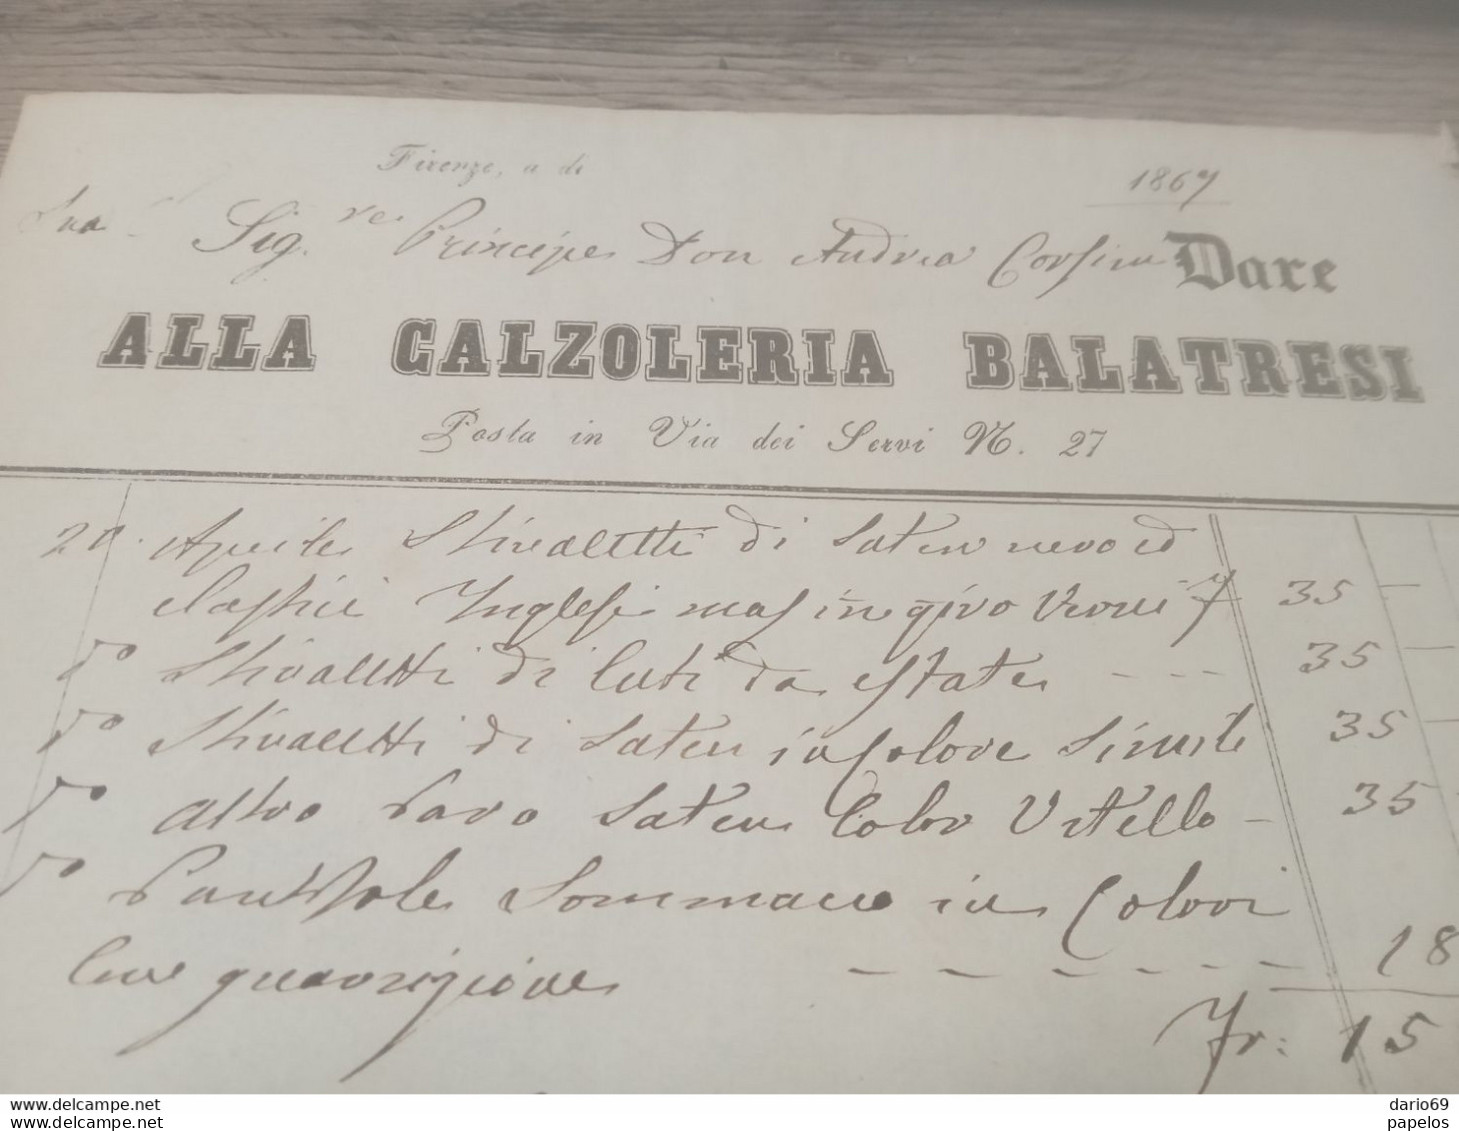 Firenze, a di 1867
Sua Sig.re Principe Don Andrea Corsini Dare
ALLA CALZOLERIA BALATRESI
Posta in Via dei Servi N. 27
20. Aprile Stivaletti di Saten nero ed
Inglesi 35
Do Stivaletti di da estate 35
Do Stivaletti di Saten in Colore Simile 35
Do altro Paro Saten Color Vitello 35
Do Pantofole Sommacco in Colori
Con guarnizione 18
Fr: 15
delcampe.net dario69
delcampe.net papelos